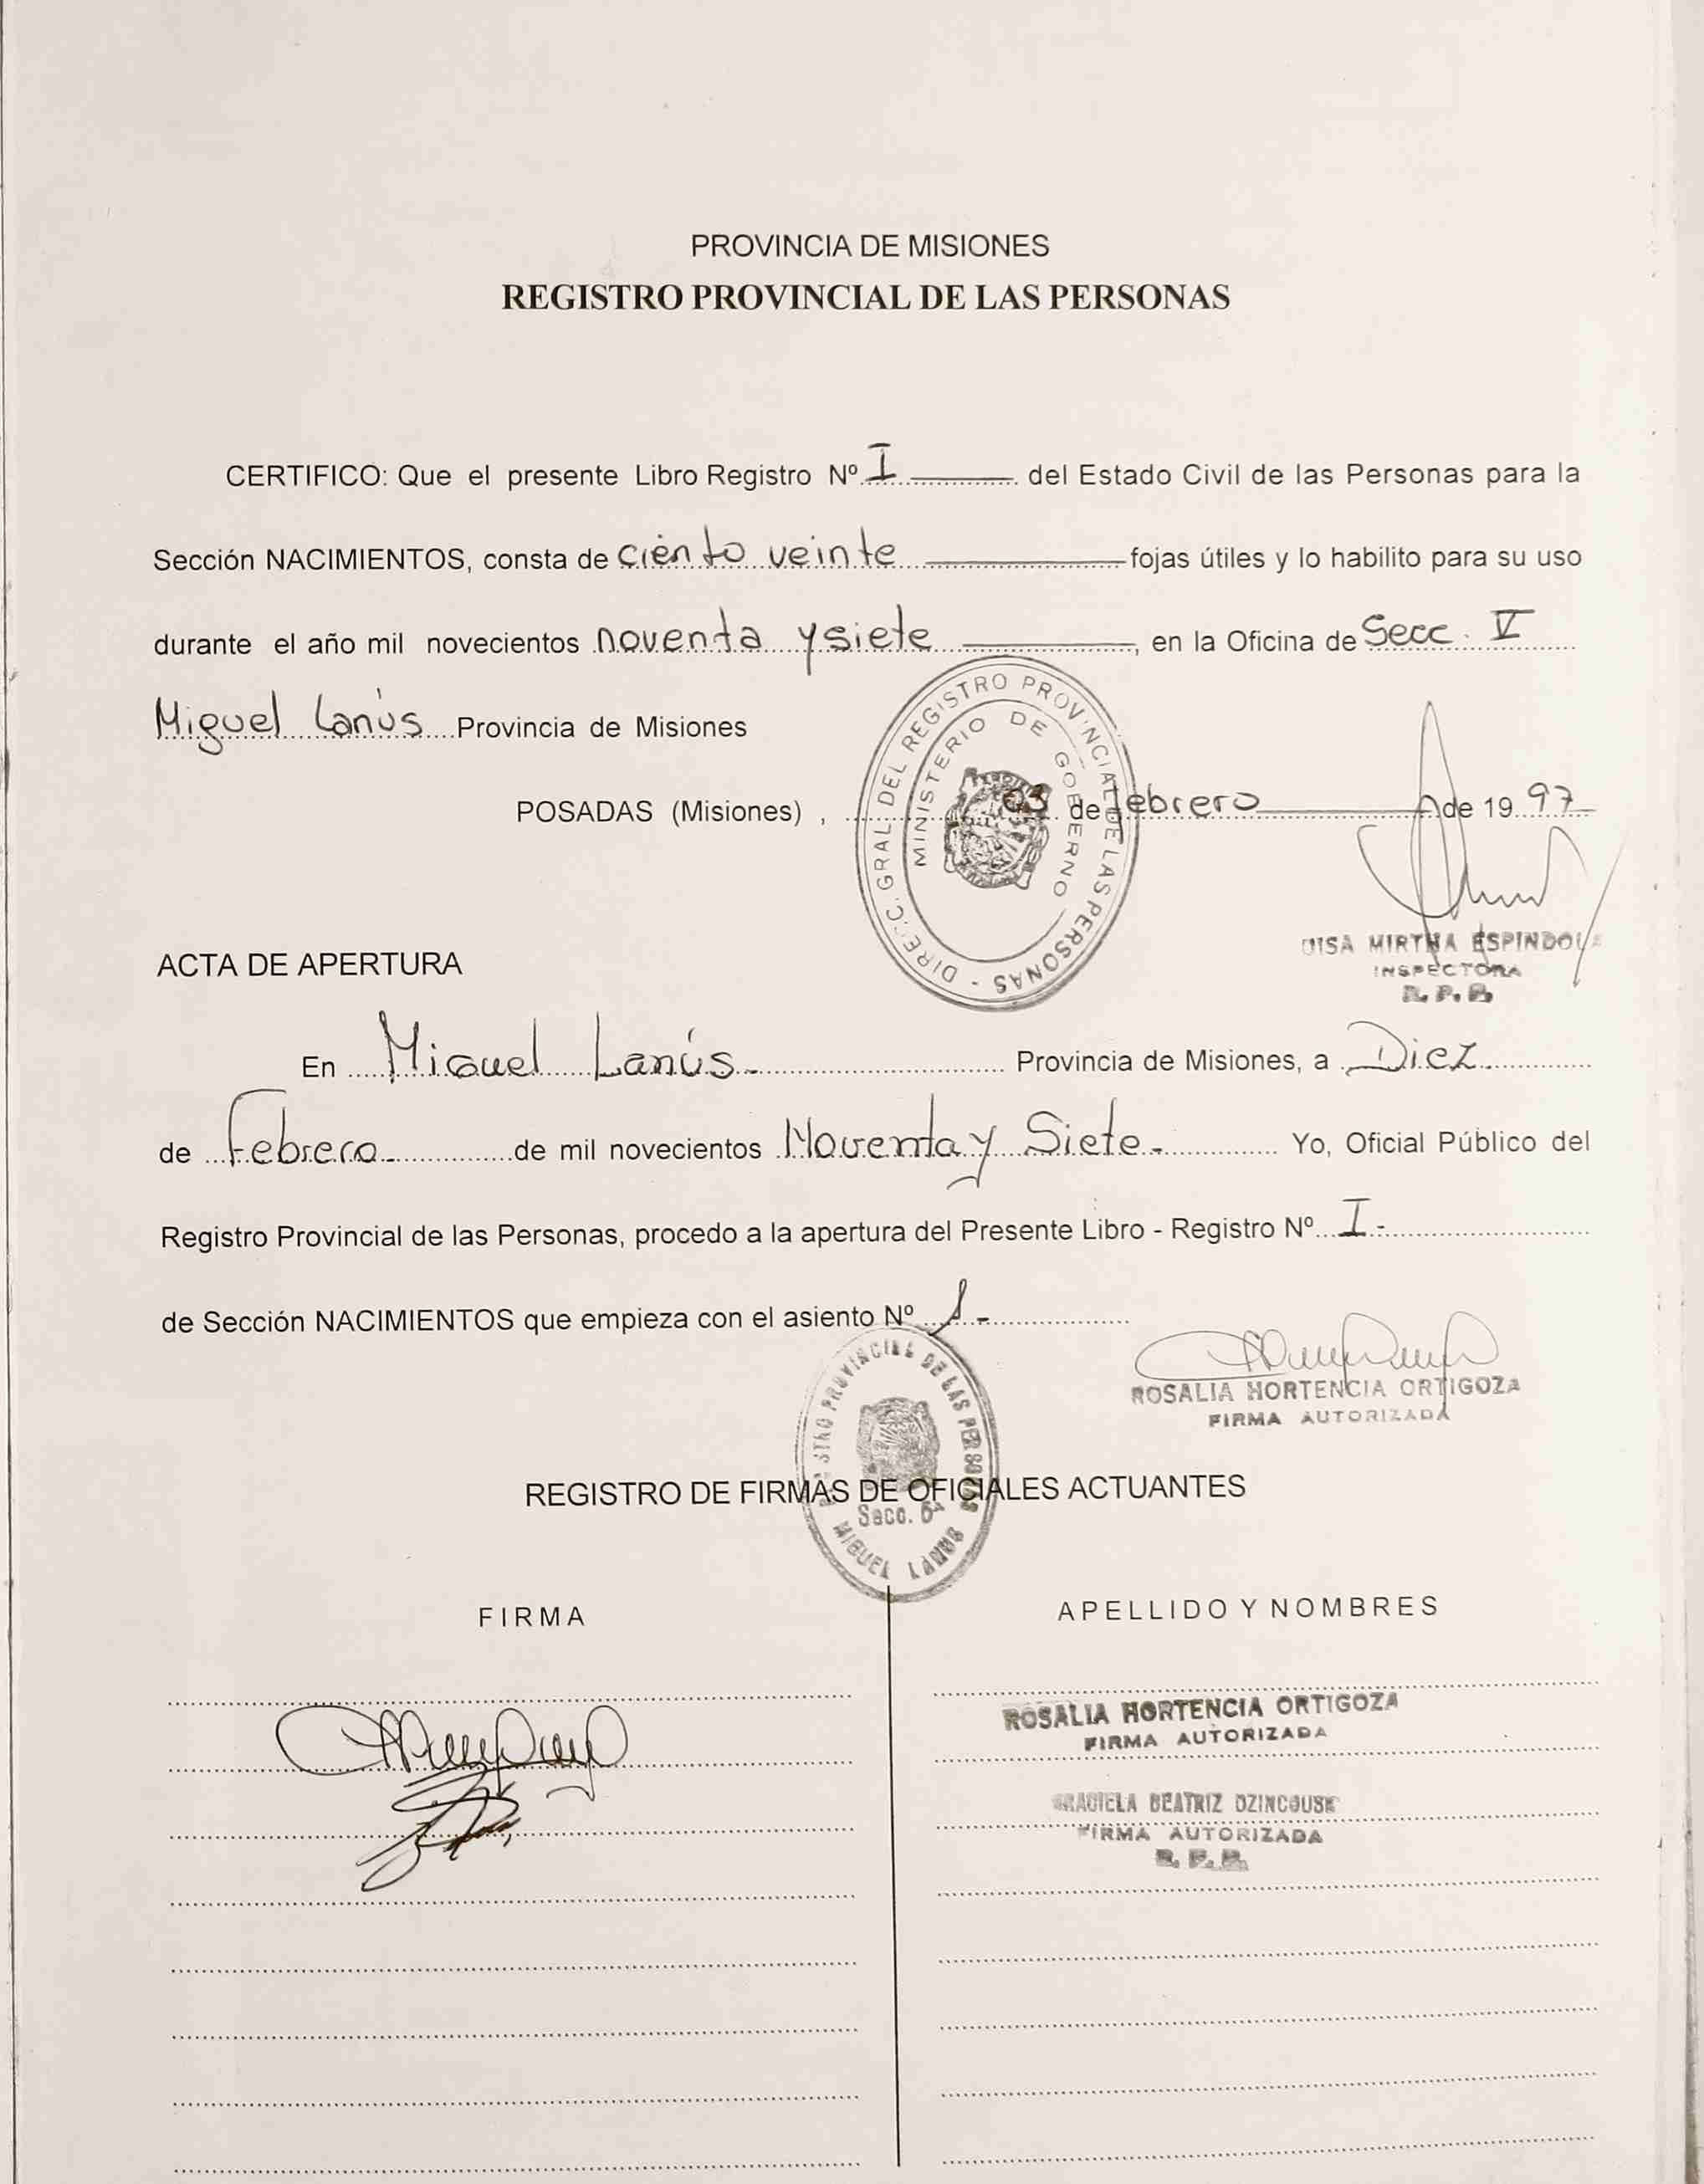 PROVINCIA DE MISIONES
REGISTRO PROVINCIAL DE LAS PERSONAS
CERTIFICO: Que el presente Libro Registro Nº I del Estado Civil de las Personas para la
Sección NACIMIENTOS, consta de ciento veinte fojas útiles y lo habilito para su uso
durante el año mil novecientos noventa y siete, en la Oficina de Secc. V
Miguel Lanús Provincia de Misiones
POSADAS (Misiones), 03 de febrero de 1997
DIRECC. GRAL DEL REGISTRO PROVINCIAL DE LAS PERSONAS -
MINISTERIO DE GOBIERNO
MIRTHA ESPINDOLA
INSPECTORA
R. P. P.
ACTA DE APERTURA
En Miguel Lanús. Provincia de Misiones, a Diez
de Febrero de mil novecientos Noventa y Siete.- Yo, Oficial Público del
Registro Provincial de las Personas, procedo a la apertura del Presente Libro - Registro Nº I.-
de Sección NACIMIENTOS que empieza con el asiento Nº 1.-
ROSALIA HORTENCIA ORTIGOZA
FIRMA AUTORIZADA
REGISTRO PROVINCIAL DE LAS PERSONAS
Secc. 5ª
MIGUEL LANUS
REGISTRO DE FIRMAS DE OFICIALES ACTUANTES
FIRMA
APELLIDO Y NOMBRES
ROSALIA HORTENCIA ORTIGOZA
FIRMA AUTORIZADA
GRACIELA BEATRIZ
FIRMA AUTORIZADA
R. P. P.